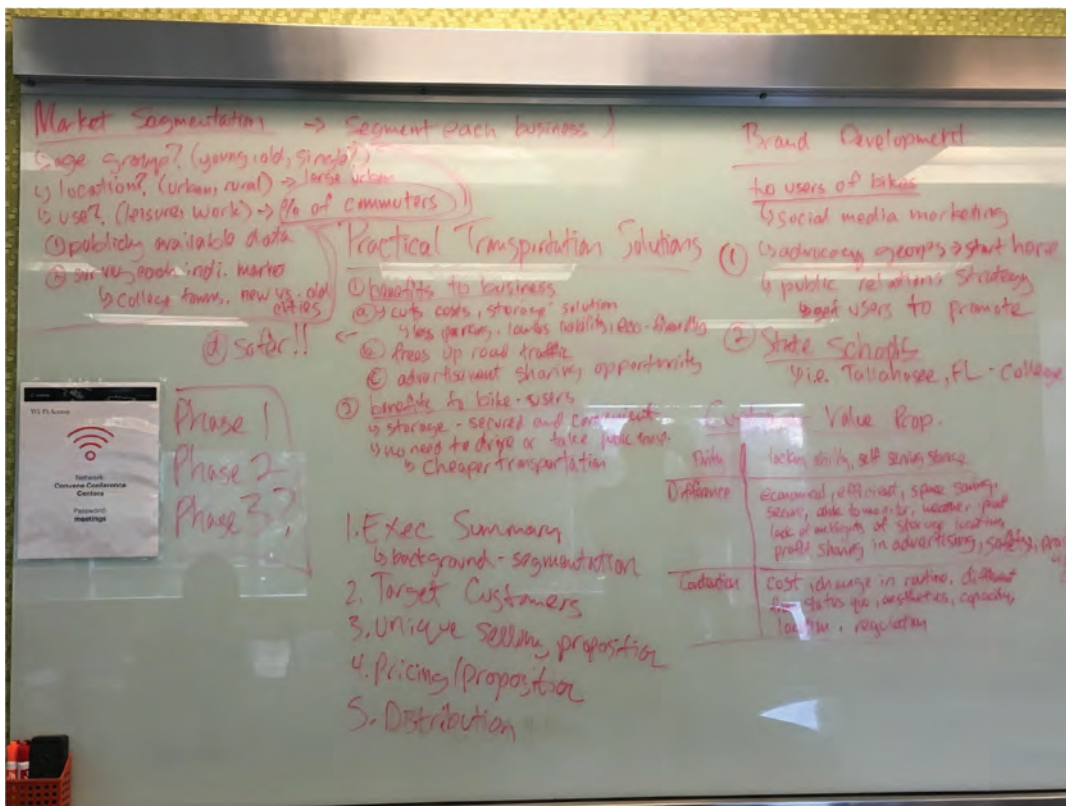 Market Segmentation → Segment each business
↳ age group? (young, old, single?)
↳ location? (urban, rural) → large urban
↳ use? (leisure, work) → % of commuters
① publicly available data
② survey each indi. market
↳ college towns, new vs. old
cities
Practical Transportation Solutions
① benefits to business
ⓐ ↳ cuts costs, storage solution
↳ less parking, lowers liability, eco-friendly
ⓑ frees up road traffic
ⓒ advertisement sharing opportunity
ⓓ safer!!
② benefits to bike-users
↳ storage - secured and convenient
↳ no need to drive or take public transp.
↳ cheaper transportation
Wi-Fi Access
Network:
Convene Conference
Centers
Password:
meetings
Phase 1
Phase 2
Phase 3?
1. Exec Summary
↳ background - segmentation
2. Target Customers
3. Unique selling proposition
4. Pricing/proposition
5. Distribution
Brand Development
to users of bikes
↳ social media marketing
① ↳ advocacy groups → start here
↳ public relations strategy
↳ get users to promote
② State Schools
↳ i.e. Tallahasee, FL - College
Value Prop.
Parity
locking ability, self serving storage
Difference
economical, efficient, space saving,
secure, able to monitor, weather proof
lack of of storage location,
profit sharing in advertising, safety,
Contention
cost, change in routine, different
status quo, aesthetics, capacity,
location, regulation